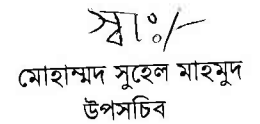 স্বাঃ/-
মোহাম্মদ সুহেল মাহমুদ
উপসচিব